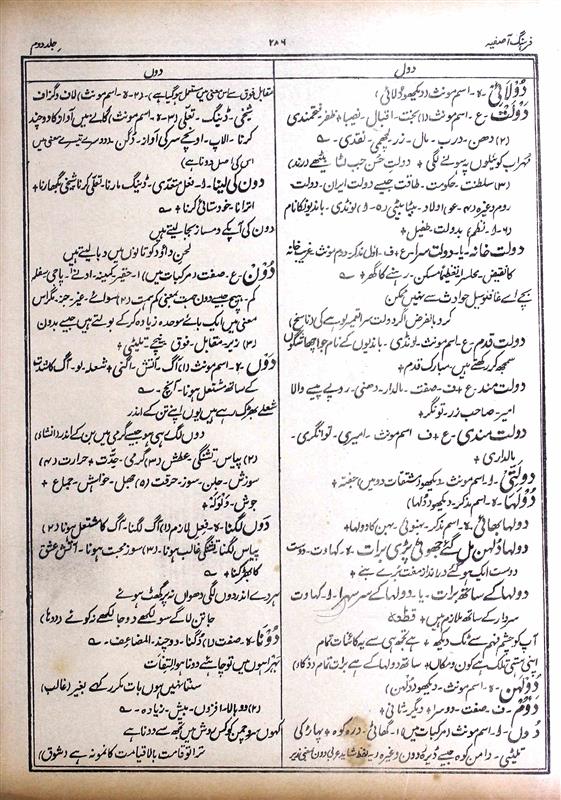 فرہنگ آصفیہ
۲۸۶
جلد دوم
دول
دوں
دَوْلائی - ہ - اسم مونث (دیکھو دُولائی)
دَوْلَت - ع - اسم مونث (۱) بخت - اقبال - نصیبا + ظفر - فتحمندی
(۲) دھن - درب - مال - زر - لچھمی - نقدی -
(۳) سلطنت - حکومت - طاقت جیسے دولت ایران - دولت
روم وغیرہ (۴ - عو) اولاد - بیٹا بیٹی (۵ - ا) لونڈی - باندیوں کا نام
(۶ - ا - نظم) بدولت - طفیل +
دولت خانہ - یا - دولت سرا - ع + ف - اول مذکر - دوم مونث - غریب خانہ
کا نقیض - محلسرا - مسکن - رہنے کا گھر +
گرد بالفرض اگر دولت سرا تعمیر لوہے کی (ناسخ)
دولت قدم - ع - اسم مونث - لونڈی - باندیوں کے نام جو اچھا شگون
سمجھ کر رکھتے ہیں - مبارک قدم +
دولت مند - ع + ف - صفت - مالدار - دھنی - روپے پیسے والا
امیر - صاحب زر - تونگر +
دولت مندی - ع + ف - اسم مونث - امیری - توانگری -
مالداری +
دولتّی - ا - اسم مونث - دیکھو (مشتقات دو میں) جفتہ +
دُولھا - ہ - اسم مذکر - دیکھو (دُلہا)
دولھا بھائی - ہ - اسم مذکر - بہنوئی - بہن کا دولہا +
دولھا دُلھن مل گئے جھوٹی پڑی برات - ہ - کہاوت - دوست
دوست ایک ہو گئے در انداز مفت بُرے بنے +
دولہا کے ساتھ برات - یا - دولہا کے سر سہرا - ا - کہاوت
سردار کے ساتھ ملازم ہیں + قطعہ
آپ کو چشم فہم سے ٹک دیکھ + ہے تجھی سے یہ کائنات تمام
اپنی ہستی تلک ہے کون و مکاں + ساتھ دولہا کے ہے برات تمام (ذکا)
دُولھن - ہ - اسم مونث - دیکھو (دُلہن)
دُوُم - ف - صفت - دوسرا + دیگر - ثانی +
دُون - ا - اسم مونث (مرکبات میں) (۱) - گھاٹی - درۂ کوہ + پہاڑ کی
تلیٹی - دامن کوہ جیسے ڈیرہ دون وغیرہ (یہ لفظ شاید عربی دون بمعنی زیر
مقابل فوق سے اس معنی میں مستعمل ہو گیا ہے) - (۲ - ہ - اسم مونث) لاف و گزاف
شیخی - ڈینگ - تعلّی (۳ - ہ - اسم مونث) گانے میں آواز کا دوچند
کرنا - الاپ - اونچے سر کی آواز -
اس کی اصل دونا ہے)
دون کی لینا - ا - فعل متعدی - ڈینگ مارنا - تعلّی کرنا شیخی بگھارنا +
اترانا - خودستائی کرنا +
دون کی آپکے دمساز بجا لیتے ہیں
لحن داؤد کو تانوں میں دبا لیتے ہیں
دُوْن - ع - صفت (مرکبات میں) (۱) حقیر - کمینہ - ادنےٰ + پاجی - سفلہ
کم - ہیچ جیسے دون ہمت بمعنی کم ہمت (۲) سوائے - غیر - جز - مگر اس
معنی میں ایک بائے موحدہ زیادہ کر کے بولتے ہیں جیسے بدون
(۳) زیر - مقابل - فوق - نیچے - تلیٹی +
دَوں - ہ - اسم مونث (۱) آگ - آتش - اگنی + شعلہ - لو - آگ کا شدت
کے ساتھ مشتعل ہونا - آنچ -
شعلے بھڑک رہے ہیں یوں اپنے تن کے اندر
دوں لگے سی ہو جیسے گرمی میں بن کے اندر (انشاء)
(۲) پیاس - تشنگی - عطش (۳) گرمی - حدّت + حرارت (۴)
سوزش - جلن - سوز - حرقت (۵) جھل - خواہش - جماع +
جوش - ولولہ +
دَوں لگنا - ہ - فعل لازم (۱) آگ لگنا - آگ کا مشتعل ہونا (۲)
پیاس لگنا - تشنگی غالب ہونا - (۳) سوز محبت ہونا - آتش عشق
کا بھڑکنا +
ہردے اندر دوں لگی دھواں نہ پرگھٹ ہوئے
جا تن لاگے سو لکھے دوجا لکھے نہ کوئے (دوہا)
دُوْنا - ہ - صفت (۱) دُگنا - دو چند - المضاعف -
بہرا ہوں میں تو چاہئے دونا ہو التفات
سنتا نہیں ہوں بات مکرر کہے بغیر (غالب)
(۲) دوبالا - افزوں - بیش - زیادہ -
ترا تو قامت بالا قیامت کا نمونہ ہے (شوق)